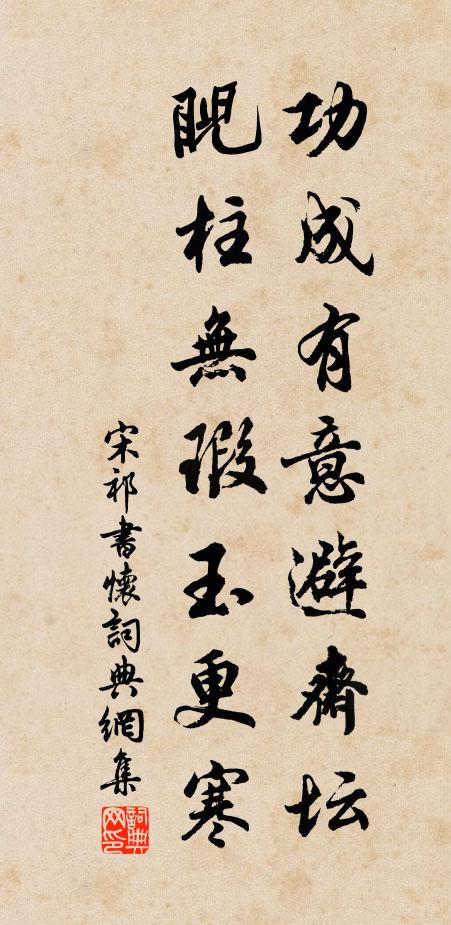 功成有意避齋坛
睨柱無瑕玉更寒
宋祁書懷詞典網集
詞典网印